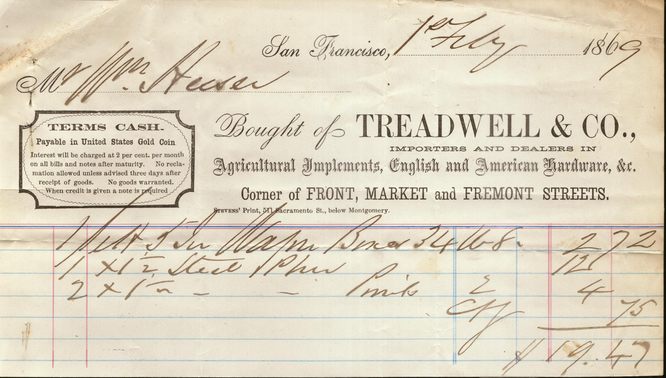 San Francisco, 1st Feby 1869
Mr Wm Heuser
TERMS CASH.
Payable in United States Gold Coin
Interest will be charged at 2 per cent. per month
on all bills and notes after maturity. No recla-
mation allowed unless advised three days after
receipt of goods. No goods warranted.
When credit is given a note is required
Bought of TREADWELL & CO.,
IMPORTERS AND DEALERS IN
Agricultural Implements, English and American Hardware, &c.
Corner of FRONT, MARKET and FREMONT STREETS.
STEVENS' Print, 511 Sacramento St., below Montgomery.
1 Wagon Boxes 34 lb 8 2 72
1 Steel 12
2 Points 2 4
75
$ 19.47